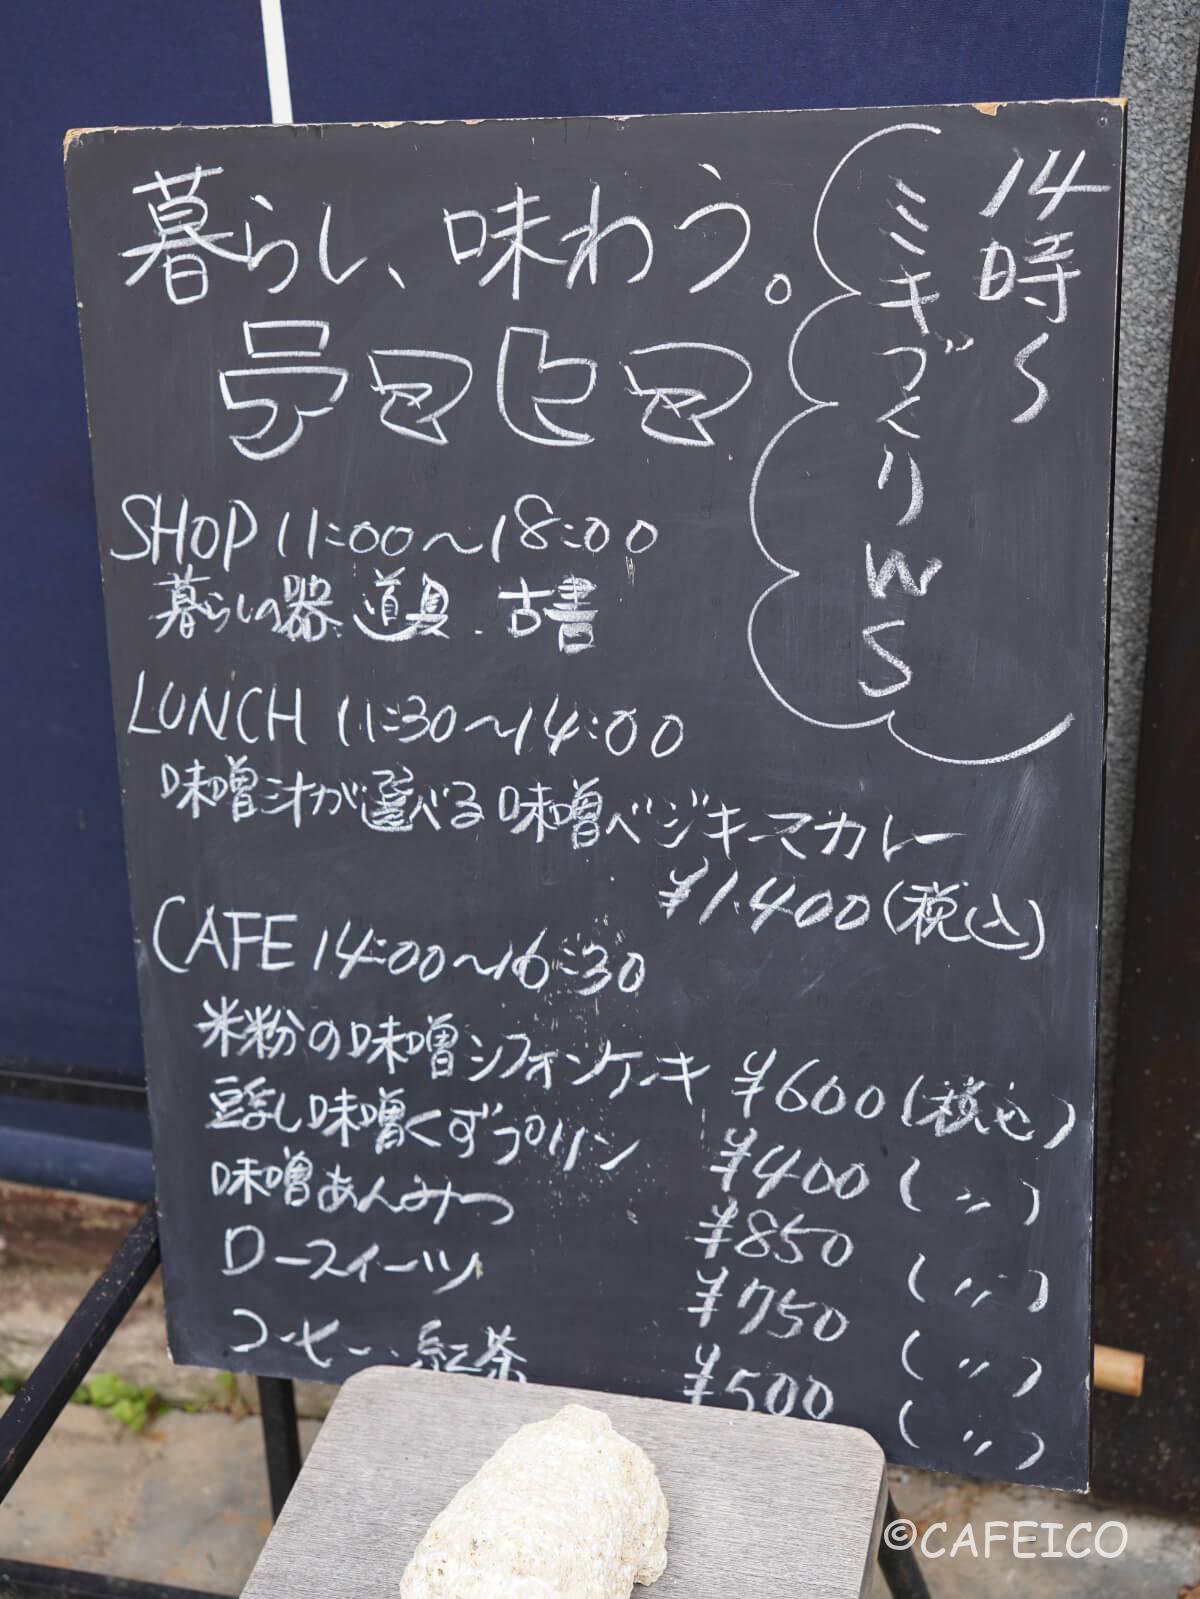 暮らし、味わう。
テマヒマ
14時〜
ミキづくり WS
SHOP 11:00〜18:00
暮らしの器、道具、古書
LUNCH 11:30〜14:00
味噌汁が選べる味噌ベジキーマカレー
¥1,400(税込)
CAFE 14:00〜16:30
米粉の味噌シフォンケーキ ¥600(税込)
豆乳し味噌くずプリン ¥400(〃)
味噌あんみつ ¥850(〃)
ロースイーツ ¥750(〃)
コーヒー、紅茶 ¥500(〃)
©CAFEICO